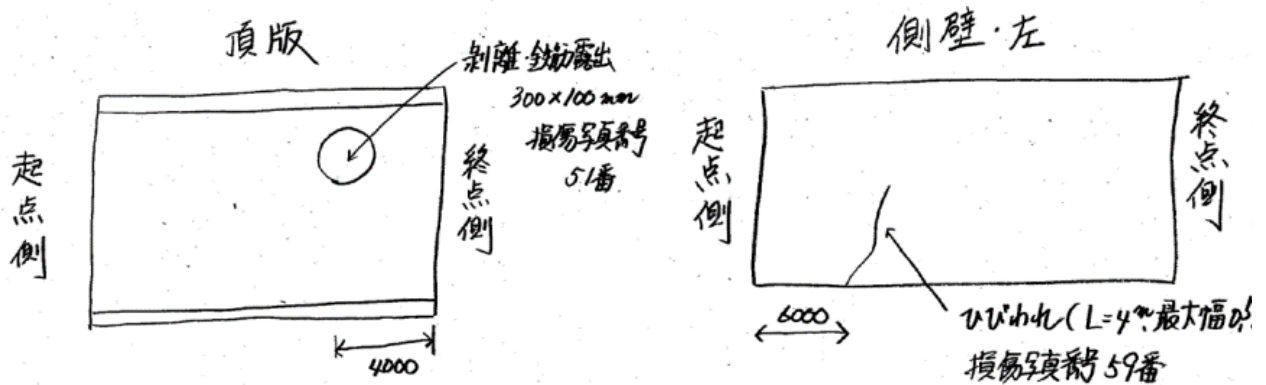 頂版
剥離・鉄筋露出
300×100mm
損傷写真番号
51番
起点側
終点側
4000
側壁・左
起点側
終点側
6000
ひびわれ(L=4m、最大幅0.
損傷写真番号59番